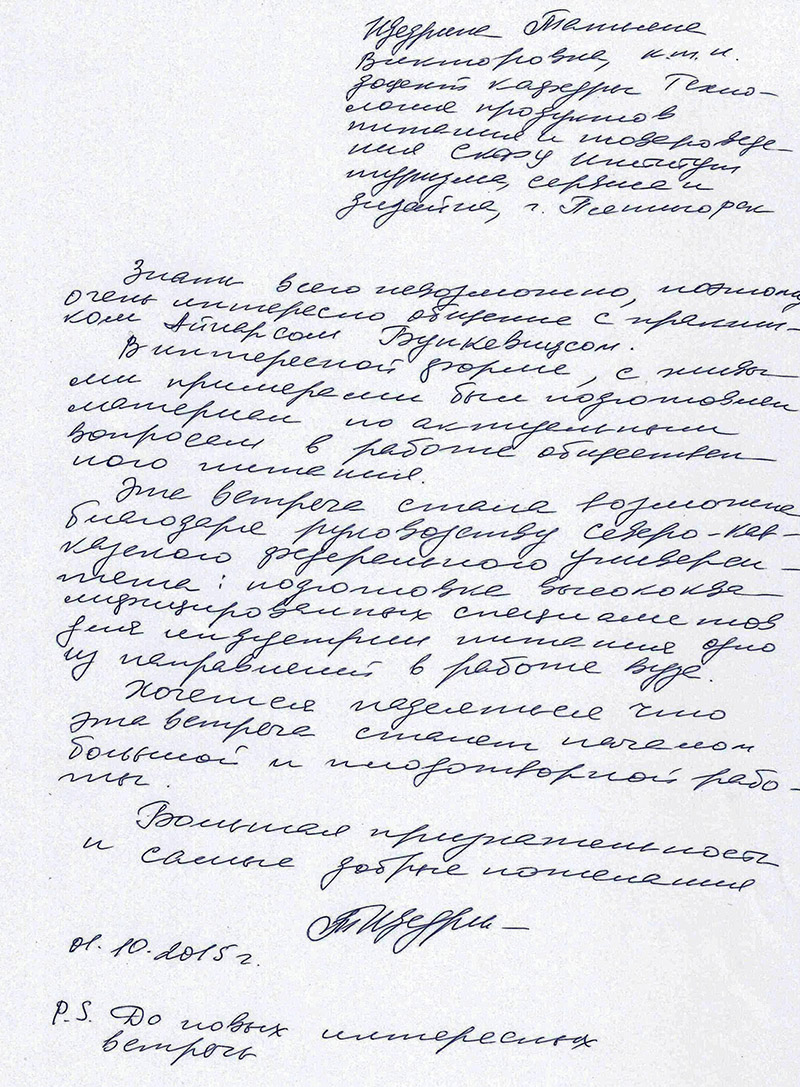 Щедрина Татьяна
Викторовна, к.т.н.
доцент кафедры Техно-
логия продуктов
питания и товароведе-
ния СКФУ Институт
туризма, сервиса и
дизайна, г. Пятигорск
Знать всего невозможно, поэтому
очень интересно общение с практи-
ком Айнарсом Бункевицсом.
В интересной форме, с живы-
ми примерами был подготовлен
материал по актуальным
вопросам в работе обществен-
ного питания.
Эта встреча стала возможна
благодаря руководству Северо-Кав-
казского федерального универси-
тета: подготовка высококва-
лифицированных специалистов
для индустрии питания одно
из направлений в работе вуза.
Хочется надеяться что
эта встреча станет началом
большой и плодотворной рабо-
ты.
Большая признательность
и самые добрые пожелания
ТЩедрин
01.10.2015г.
P.S. До новых интересных
встречь